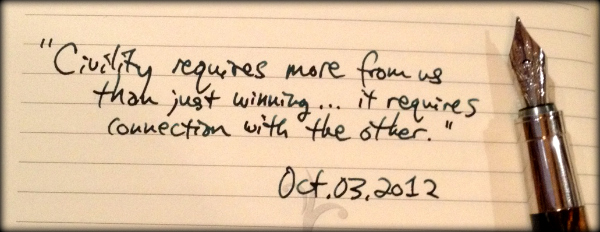 "Civility requires more from us
than just winning... it requires
connection with the other."
Oct.03.2012